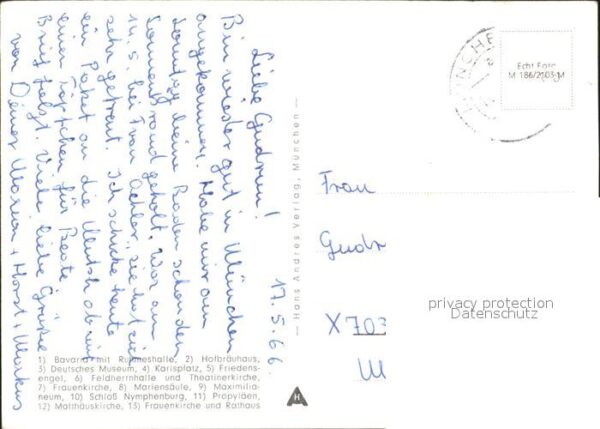 17.5.66
Liebe Gudrun!
Bin wieder gut in München
angekommen. Habe mir am
Sonntag beim Baden schon den
Sonnenbrand geholt. War am
14.5. bei Frau sie hat sich
sehr gefreut. Ich schicke heute
ein Paket an die Mutsch ab mit
einem für Beate.
Brief folgt. Viele liebe Grüße
von Deiner Marion + Horst + Markus
1) Bavaria mit Ruhmeshalle, 2) Hofbräuhaus,
3) Deutsches Museum, 4) Karlsplatz, 5) Friedens-
engel, 6) Feldherrnhalle und Theatinerkirche,
7) Frauenkirche, 8) Mariensäule, 9) Maximilia-
neum, 10) Schloß Nymphenburg, 11) Propyläen,
12) Matthäuskirche, 13) Frauenkirche und Rathaus
— Hans Andres Verlag, München —
A
H
MÜNCHE
Echt Foto
M 186/2103 M
Frau
Gudr
X703
privacy protection
Datenschutz